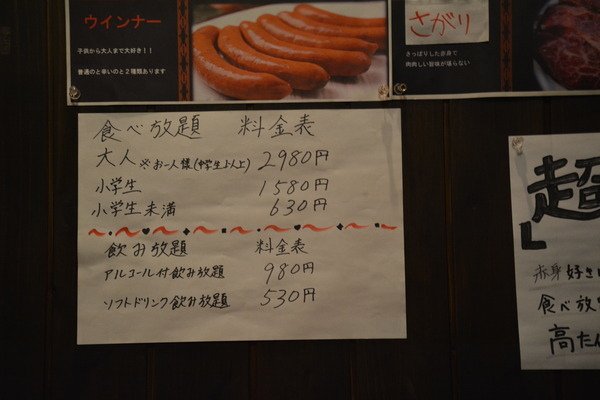 ウインナー
子供から大人まで大好き!!
普通のと辛いのと2種類あります
さがり
さっぱりした赤身で
肉肉しい旨味が堪らない
食べ放題 料金表
大人 ※お一人様(中学生以上) 2980円
小学生 1580円
小学生未満 630円
飲み放題 料金表
アルコール付飲み放題 980円
ソフトドリンク飲み放題 530円
超
赤身好き
食べ放
高たん